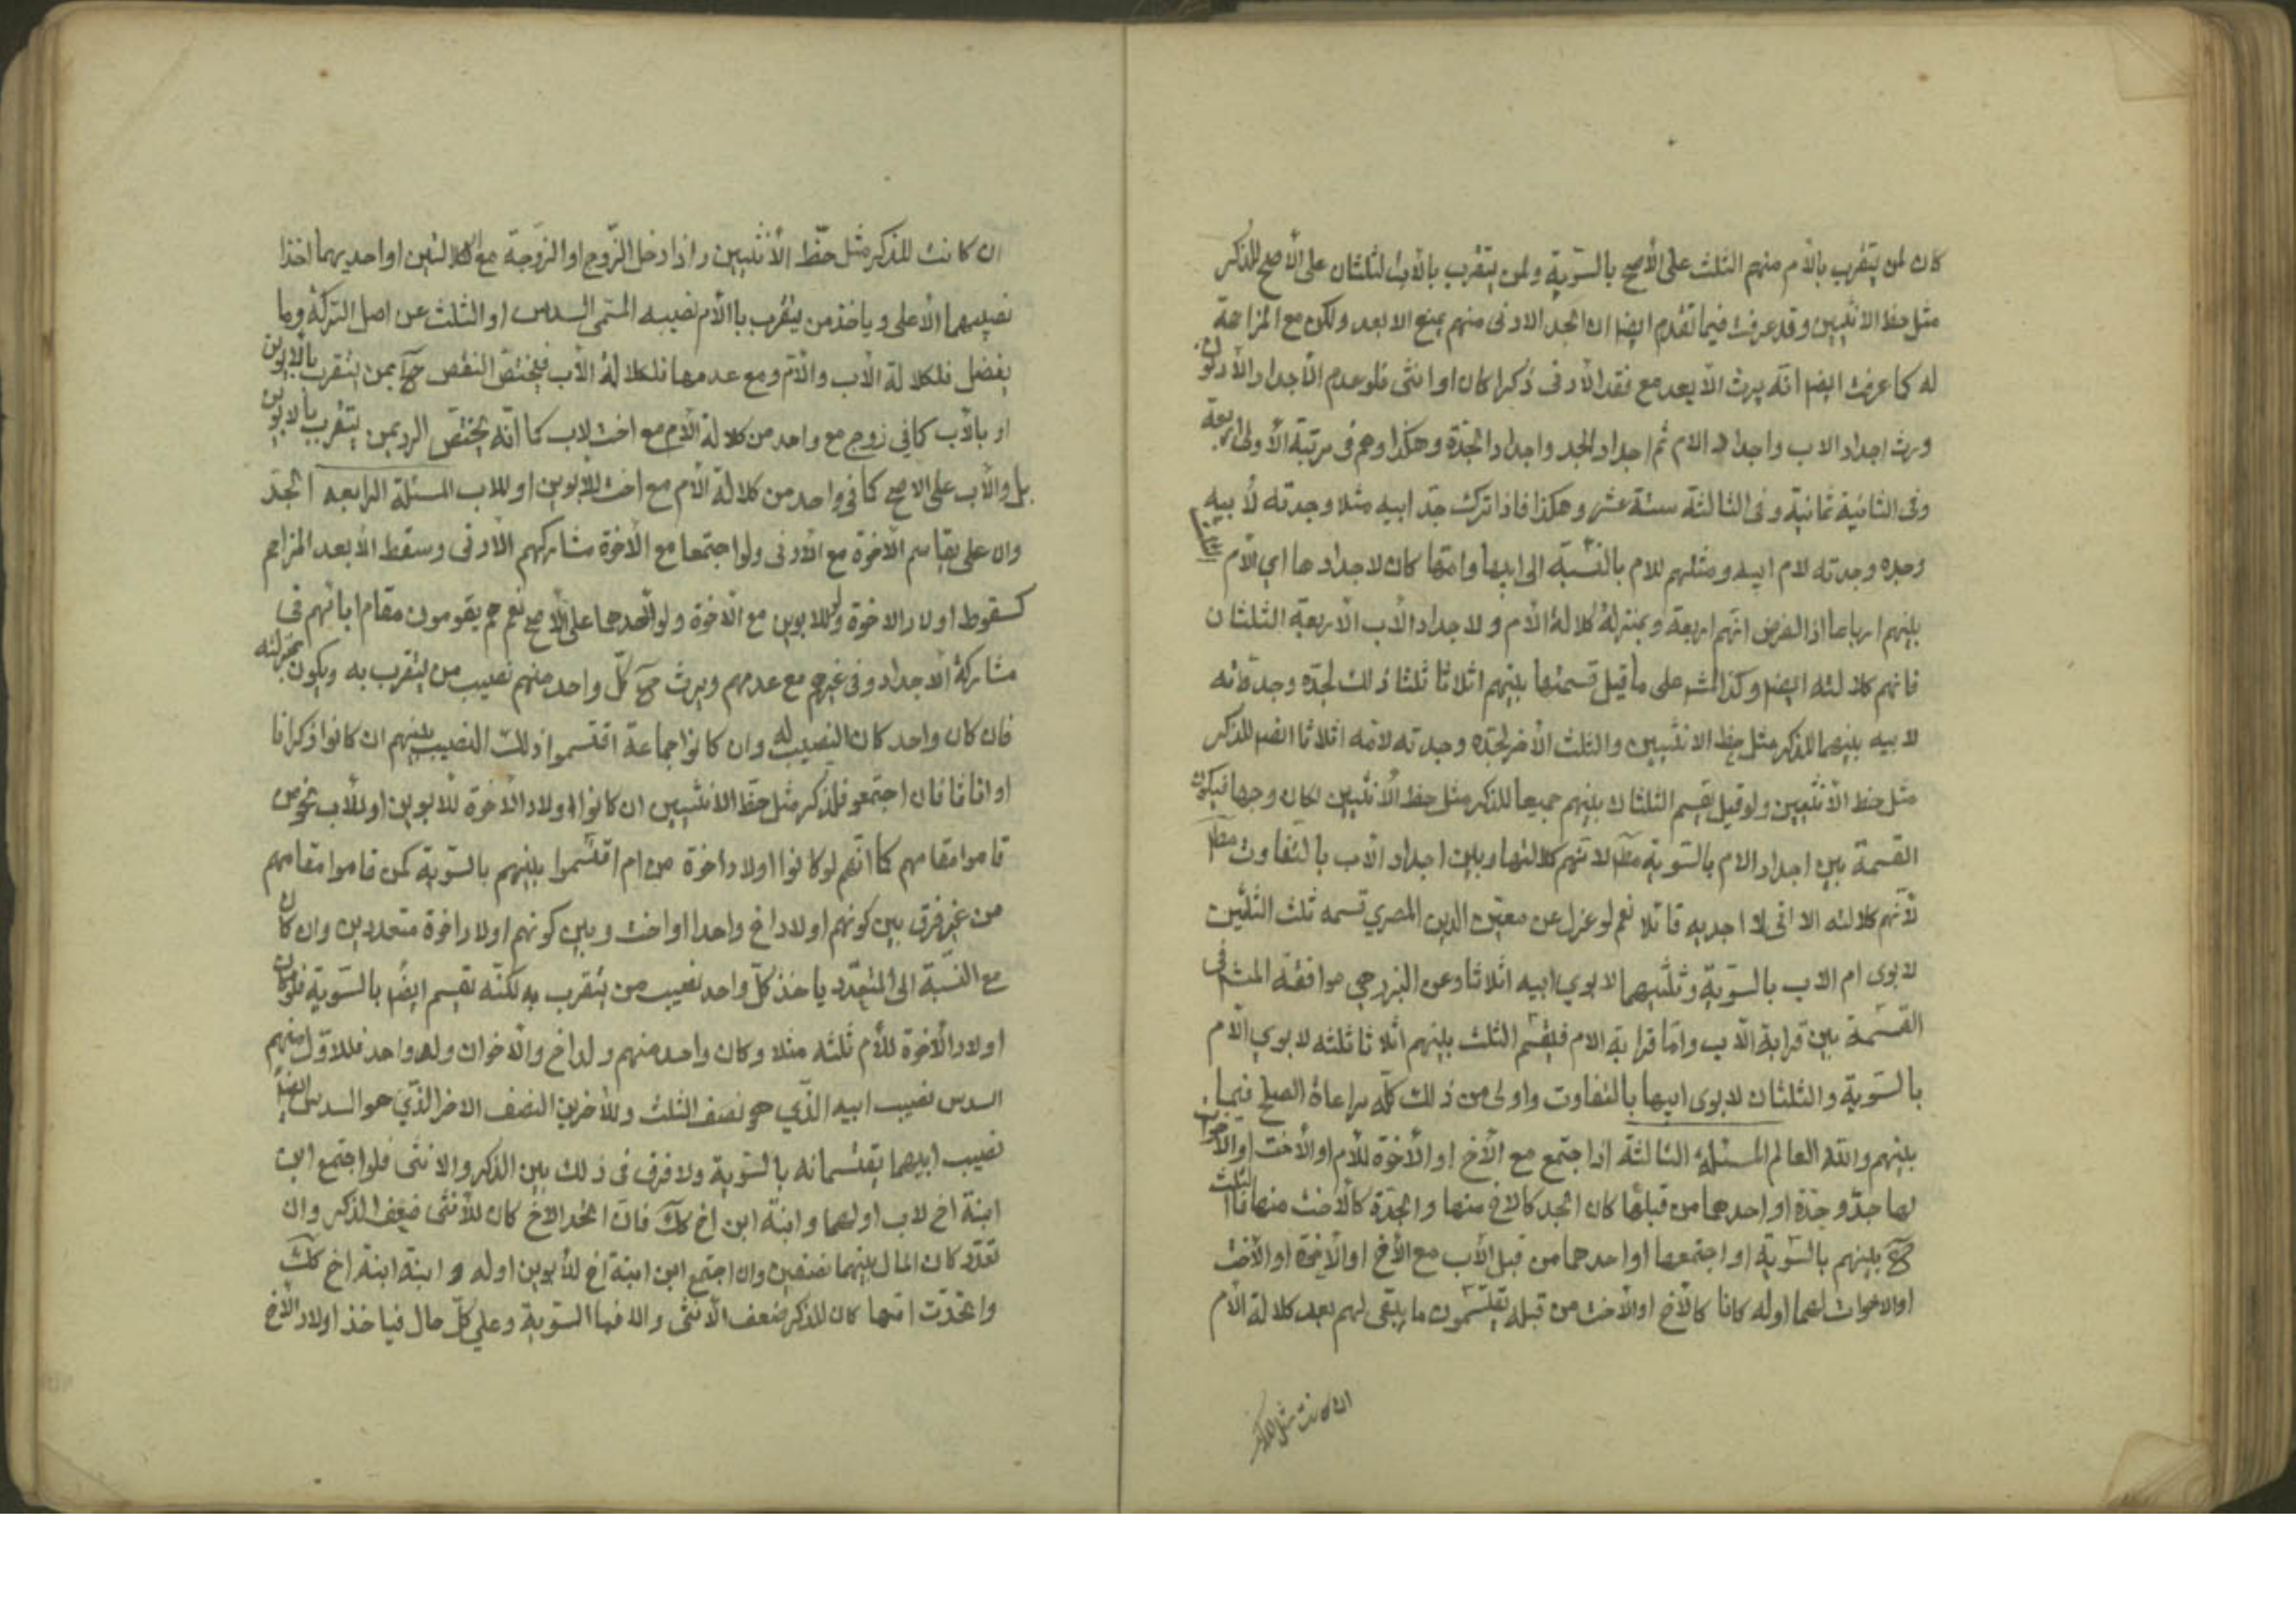 كان لمن يتقرب بالأم منهم الثلث على الأصح بالسوية ولمن يتقرب بالاب الثلثان على الأصح للذكر
مثل حظ الانثيين وقد عرفت فيما تقدم ايضا ان الجد الادنى منهم يمنع الابعد ولكن مع المزاحمة
له كما عرفت ايضا انه يرث الأبعد مع فقد الأدنى ذكرا كان او انثى فلو عدم الأجداد الأدنون
ورث اجداد الاب واجداد الام ثم اجداد الجد واجداد الجدة وهكذا وهم فى مرتبة الأولى اربعة
وفى الثانية ثمانية وفى الثالثة ستة عشر وهكذا فاذا ترك جد ابيه مثلا وجدته لأبيه
وجده وجدته لام ابيه ومثلهم للام بالنسبة الى ابيها وامها كان لاجدادها اي الأم الثلث
بينهم ارباعا اذ الفرض انهم اربعة وبمنزلة كلالة الأم ولاجداد الأب الأربعة الثلثان
فانهم كلالته ايضا وكذا على ما قيل قسمتها بينهم اثلاثا ثلثا ذلك لجده وجدته
لابيه بينهما للذكر مثل حظ الانثيين والثلث الأخر لجده وجدته لامه اثلاثا ايضا للذكر
مثل حظ الأنثيين ولو قيل يقسم الثلثان بينهم جميعا للذكر مثل حظ الأنثيين لكان وجها فيكون
القسمة بين اجداد الام بالسوية لانهم كلالتها وبين اجداد الأب بالتفاوت
لأنهم كلالته الا انى لا اجد به قائلا نعم لو عزل عن معين الدين المصري قسمه ثلث الثلثين
لابوى ام الاب بالسوية وثلثيهما لابوي ابيه اثلاثا وعن البزرجي موافقة فى
القسمة بين قرابة الأب واما قرابة الام فيقسم الثلث بينهم اثلاثا ثلثه لابوي الأم
بالسوية والثلثان لابوى ابيها بالتفاوت واولى من ذلك كله مراعاة الصلح فيما
بينهم والله العالم المسئلة الثالثة اذا اجتمع مع الأخ او الأخوة للأم او الأخت او الأخوات
لها جد وجدة او احدهما من قبلها كان الجد كالاخ منها والجدة كالأخت منها فالثلث
ح بينهم بالسوية او اجتمعا او احدهما من قبل الأب مع الأخ او الأخوة او الأخت
او الاخوات لهما او له كانا كالأخ او الأخت من قبله يقتسمون ما يبقى لهم بعد كلالة الأم
ان كانت
ان كانت للذكر مثل حظ الأنثيين واذا دخل الزوج او الزوجة مع الكلالتين او احديهما اخذا
نصيبهما الأعلى وياخذ من يتقرب بالأم نصيبه المسمى السدس او الثلث عن اصل التركة وما
يفضل فلكلالة الأب والأم ومع عدمها فلكلالة الأب فيختص النقص ح بمن يتقرب بالأبوين
او بالأب كما فى زوج مع واحد من كلالة الأم مع اخت لاب كما انه يختص الرد بمن يتقرب بالأبوين
بل والأب على الاصح كما فى واحد من كلالة الأم مع اخت للأبوين او للاب المسئلة الرابعة الجد
وان على يقاسم الأخوة مع الأدنى ولو اجتمعا مع الأخوة شاركهم الأدنى وسقط الأبعد المزاحم
كسقوط اولاد الاخوة ولو للابوين مع الأخوة ولو احدهما على الأصح نعم هم يقومون مقام ابائهم فى
مشاركة الأجداد وفى غيرهم مع عدمهم ويرث ح كل واحد منهم نصيب من يتقرب به ويكون بمنزلته
فان كان واحد كان النصيب له وان كانوا جماعة اقتسموا ذلك النصيب بينهم ان كانوا ذكرانا
او اناثا فان اجتمعو فللذكر مثل حظ الانثيين ان كانوا اولاد الأخوة للأبوين او للأب
قاموا مقامهم كما انهم لو كانوا اولاد اخوة من ام اقتسموا بينهم بالسوية كمن قاموا مقامهم
من غير فرق بين كونهم اولاد اخ واحد او اخت وبين كونهم اولاد اخوة متعددين وان كان
مع النسبة الى المتعدد ياخذ كل واحد نصيب من يتقرب به لكنه تقسم ايضا بالسوية فلو كان
اولاد الأخوة للأم ثلثه مثلا وكان واحد منهم ولد اخ والأخوان ولد واحد فللأول منهم
السدس نصيب ابيه الذي هو نصف الثلث وللأخرين النصف الاخر الذي هو السدس ايضا
نصيب ابيهما يقتسمانه بالسوية ولا فرق فى ذلك بين الذكر والانثى فلو اجتمع ابن
ابنة اخ لاب او لهما وابنة ابن اخ كك فان اتحد الاخ كان للأنثى ضعف الذكر وان
تعدد كان المال بينهما نصفين وان اجتمع ابن ابنة اخ للأبوين او له وابنة ابنة اخ كك
واتحدت امهما كان للذكر ضعف الأنثى والا فبالسوية وعلى كل حال فياخذ اولاد الأخ